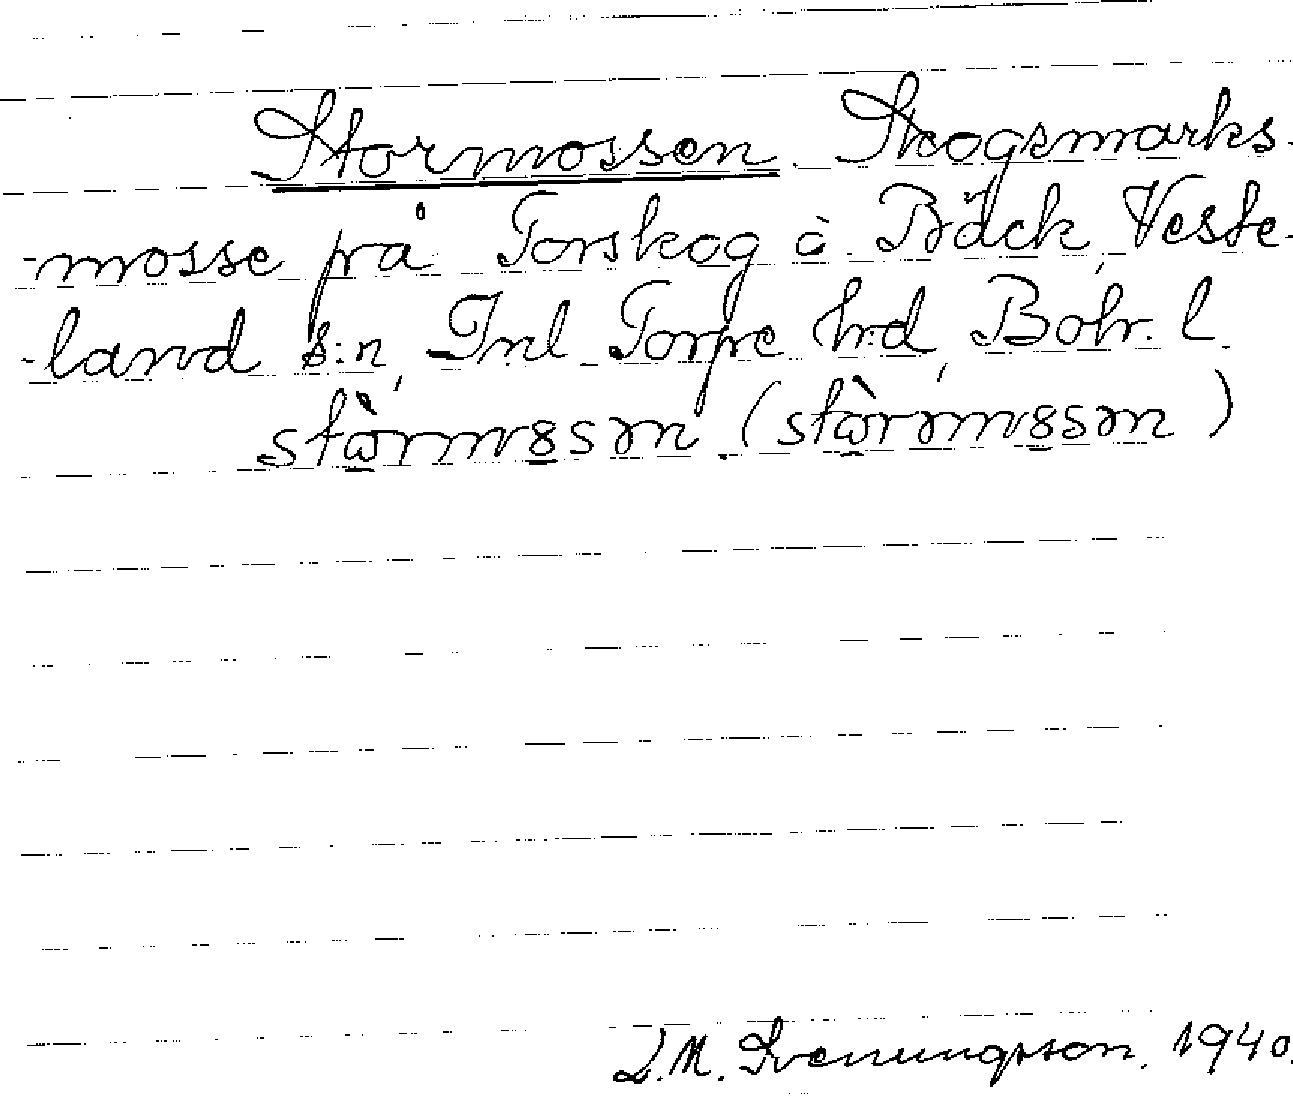 Stormossen. Skogsmarks-
-mosse på Torskog o Bäck, Veste-
-land s:n, Inl Torpe hrd, Boh. l.
stòrmɞsən (stòrəmɞsən)
L.M. Svenungsson. 1940.